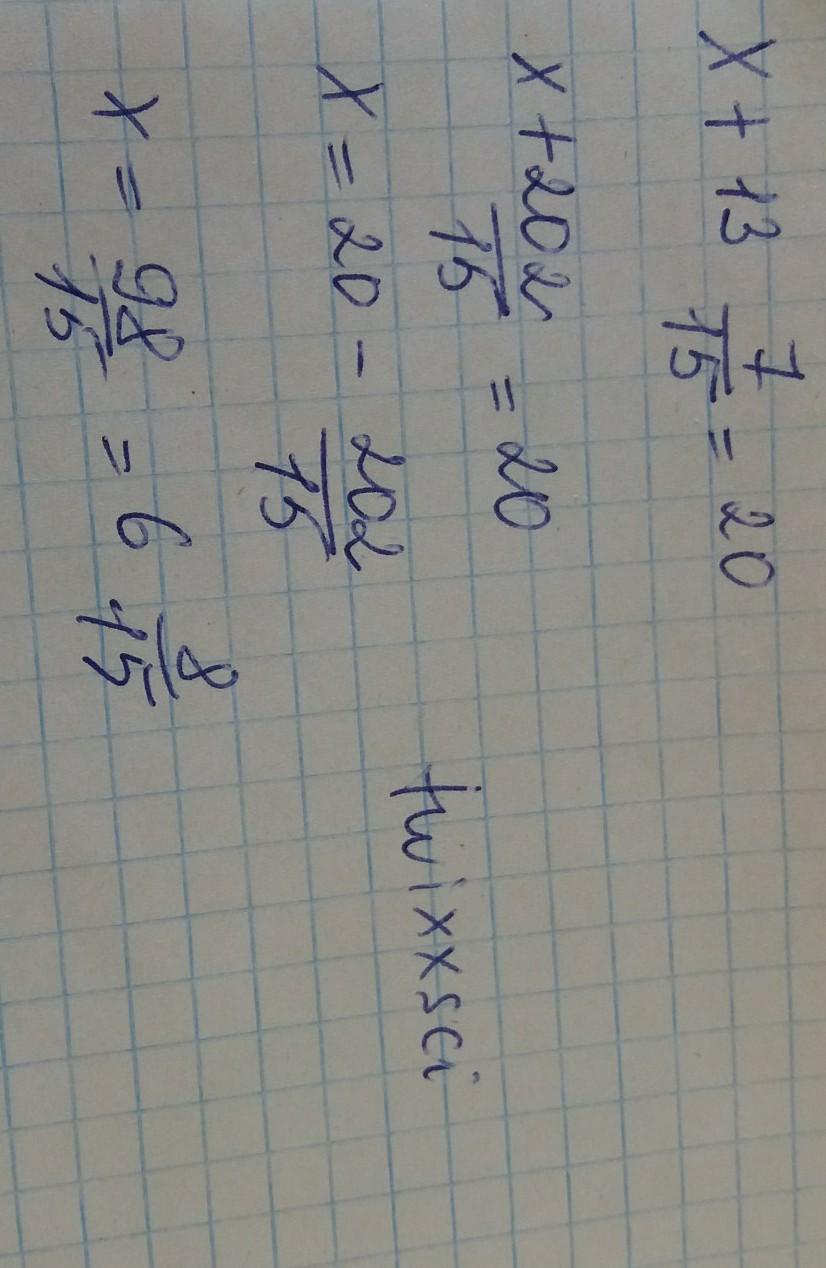 x + 13 7/15 = 20
x + 202/15 = 20
x = 20 - 202/15
x = 98/15 = 6 8/15
twixxsci